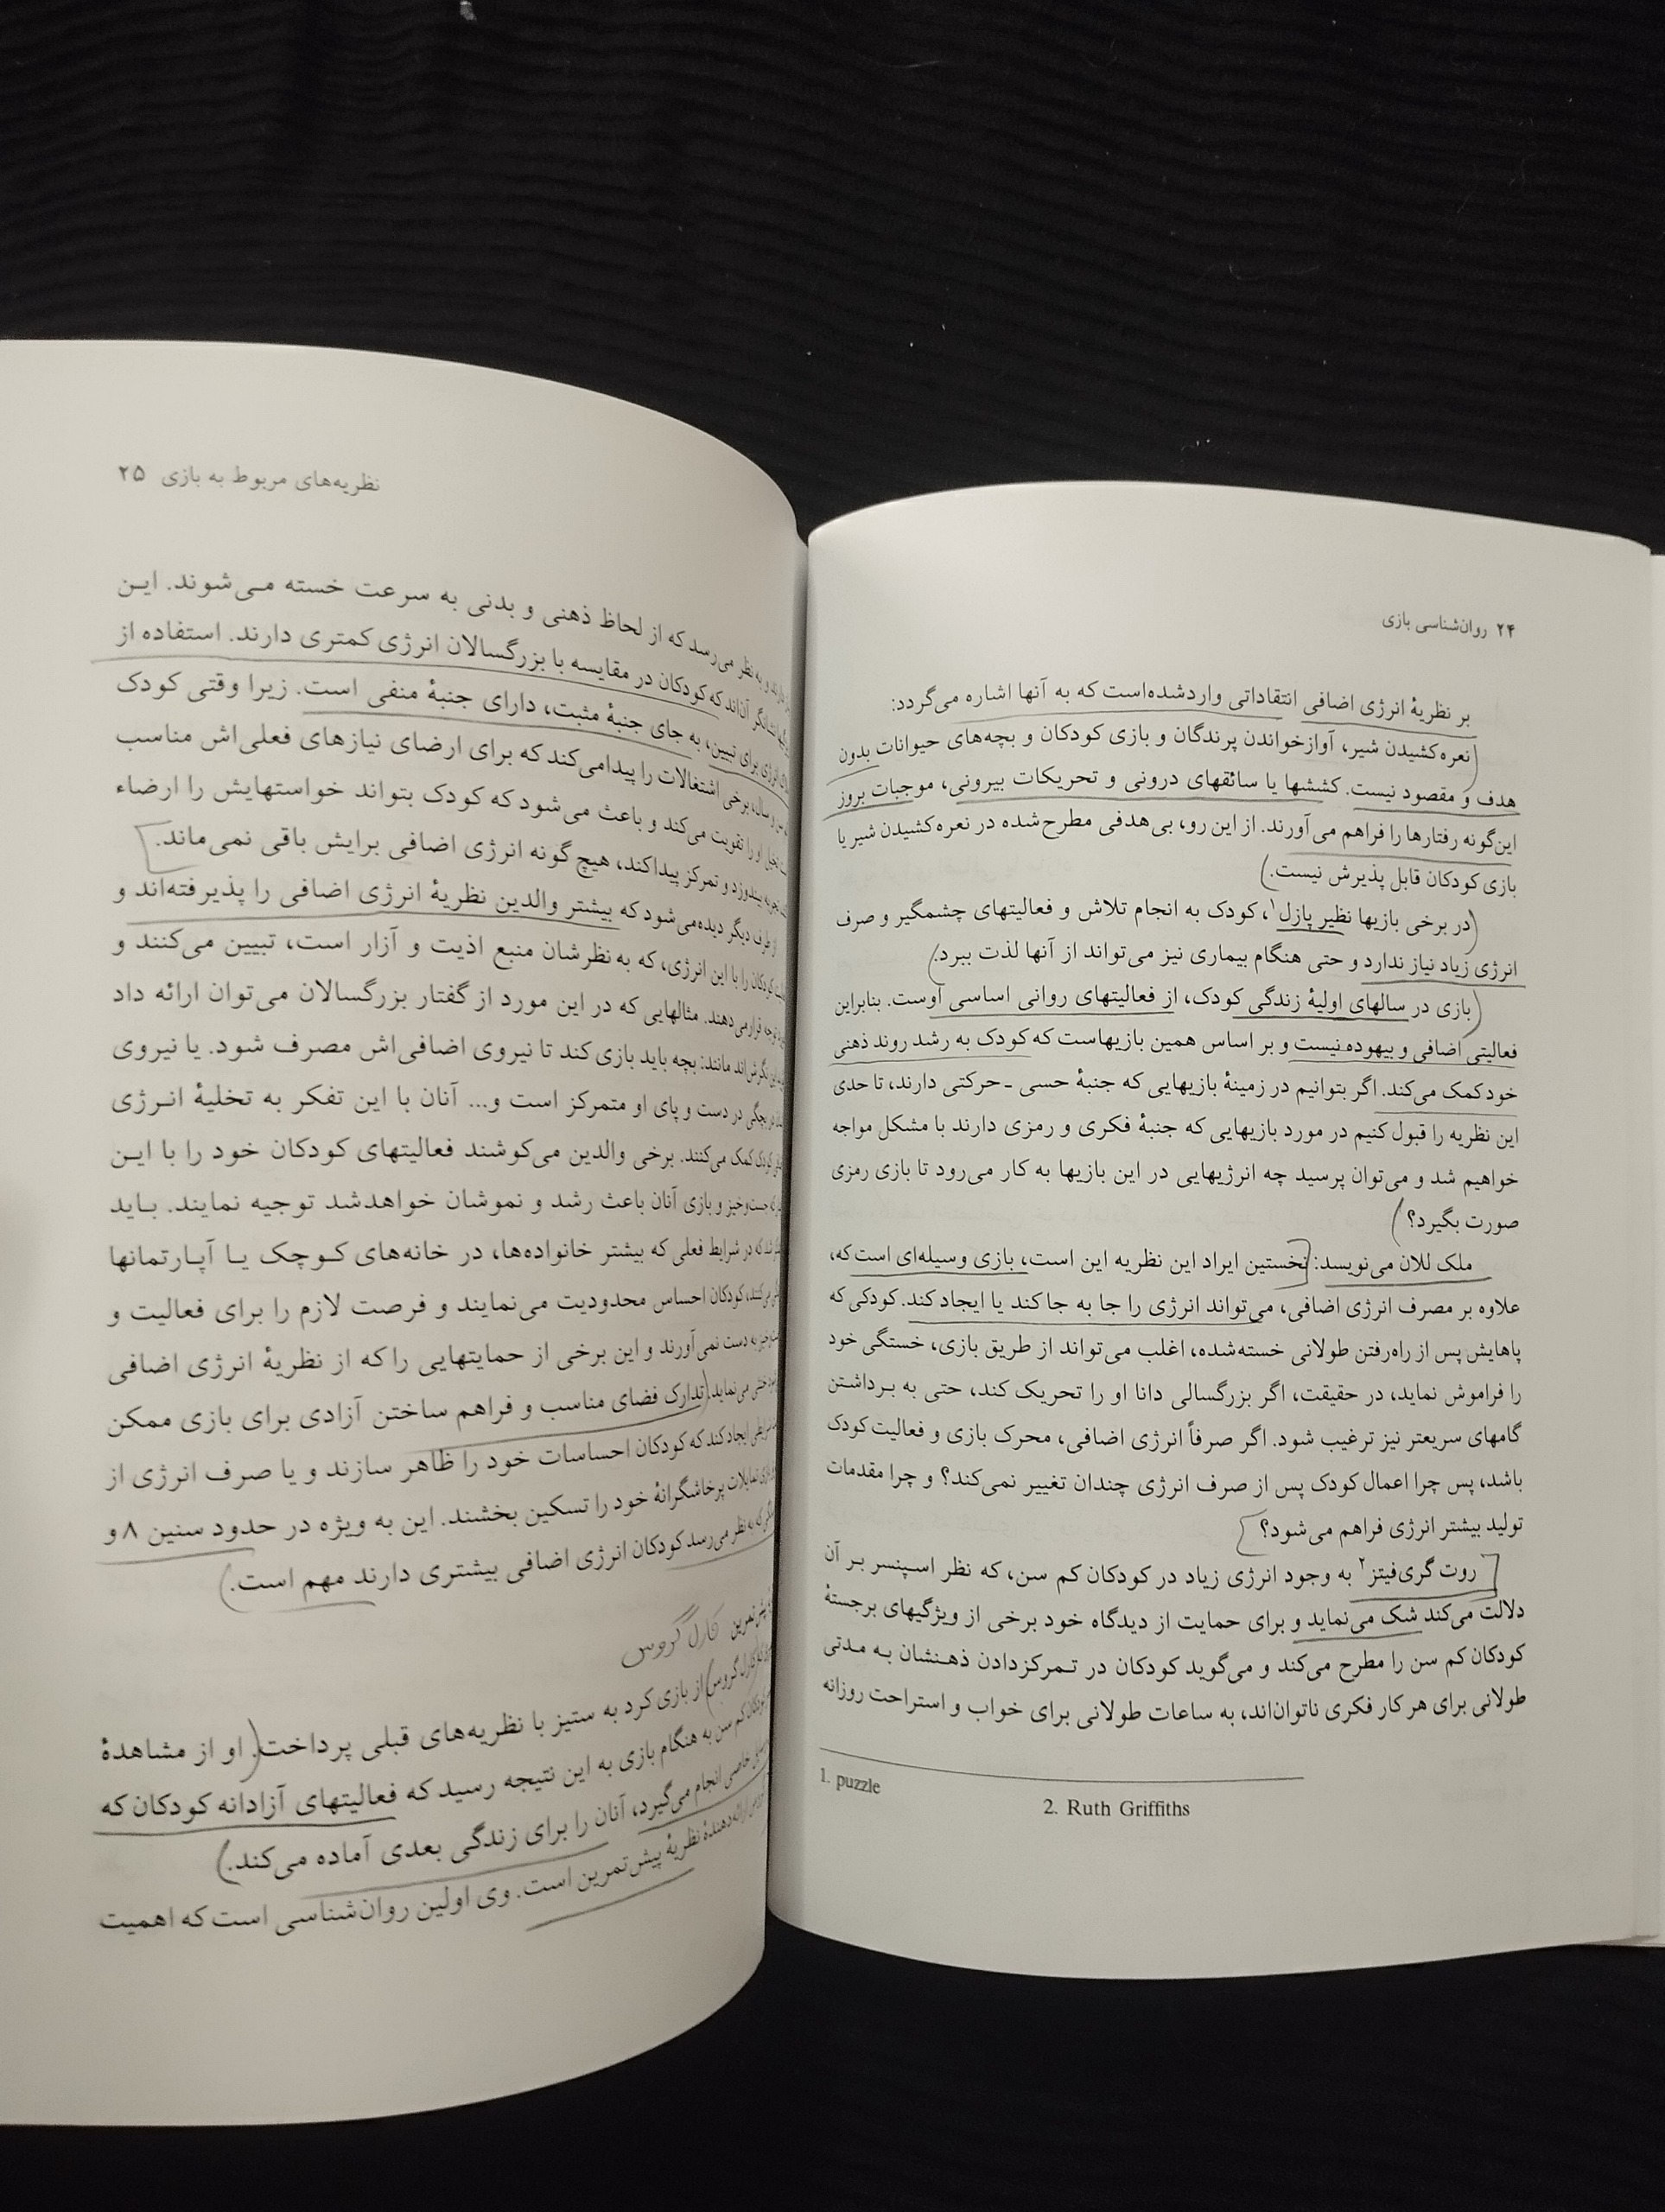 ۲۴ روان‌شناسی بازی
بر نظریهٔ انرژی اضافی انتقاداتی واردشده‌است که به آنها اشاره می‌گردد:
نعره‌کشیدن شیر، آوازخواندن پرندگان و بازی کودکان و بچه‌های حیوانات بدون
هدف و مقصود نیست. کششها یا سائقهای درونی و تحریکات بیرونی، موجبات بروز
این‌گونه رفتارها را فراهم می‌آورند. از این رو، بی‌هدفی مطرح‌شده در نعره‌کشیدن شیر یا
بازی کودکان قابل پذیرش نیست.)
(در برخی بازیها نظیر پازل۱، کودک به انجام تلاش و فعالیتهای چشمگیر و صرف
انرژی زیاد نیاز ندارد و حتی هنگام بیماری نیز می‌تواند از آنها لذت ببرد.)
(بازی در سالهای اولیهٔ زندگی کودک، از فعالیتهای روانی اساسی اوست. بنابراین
فعالیتی اضافی و بیهوده‌نیست و بر اساس همین بازیهاست که کودک به رشد روند ذهنی
خود کمک می‌کند. اگر بتوانیم در زمینهٔ بازیهایی که جنبهٔ حسی ـ حرکتی دارند، تا حدی
این نظریه را قبول کنیم در مورد بازیهایی که جنبهٔ فکری و رمزی دارند با مشکل مواجه
خواهیم شد و می‌توان پرسید چه انرژیهایی در این بازیها به کار می‌رود تا بازی رمزی
صورت بگیرد؟)
ملک للان می‌نویسد: [نخستین ایراد این نظریه این است، بازی وسیله‌ای است‌که،
علاوه بر مصرف انرژی اضافی، می‌تواند انرژی را جا به جا کند یا ایجاد کند. کودکی که
پاهایش پس از راه‌رفتن طولانی خسته‌شده، اغلب می‌تواند از طریق بازی، خستگی خود
را فراموش نماید، در حقیقت، اگر بزرگسالی دانا او را تحریک کند، حتی به برداشتن
گامهای سریعتر نیز ترغیب شود. اگر صرفاً انرژی اضافی، محرک بازی و فعالیت کودک
باشد، پس چرا اعمال کودک پس از صرف انرژی چندان تغییر نمی‌کند؟ و چرا مقدمات
تولید بیشتر انرژی فراهم می‌شود؟]
[روت گری‌فیتز۲ به وجود انرژی زیاد در کودکان کم سن، که نظر اسپنسر بر آن
دلالت می‌کند شک می‌نماید و برای حمایت از دیدگاه خود برخی از ویژگیهای برجستهٔ
کودکان کم سن را مطرح می‌کند و می‌گوید کودکان در تمرکزدادن ذهنشان به مدتی
طولانی برای هر کار فکری ناتوان‌اند، به ساعات طولانی برای خواب و استراحت روزانه
1. puzzle
2. Ruth Griffiths
نظریه‌های مربوط به بازی ۲۵
و به نظر می‌رسد که از لحاظ ذهنی و بدنی به سرعت خسته می‌شوند. این
نشانگر آن‌اند که کودکان در مقایسه با بزرگسالان انرژی کمتری دارند. استفاده از
انرژی برای تبیین، به جای جنبهٔ مثبت، دارای جنبهٔ منفی است. زیرا وقتی کودک
سال، برخی اشتغالات را پیدا می‌کند که برای ارضای نیازهای فعلی‌اش مناسب
تخیل او را تقویت می‌کند و باعث می‌شود که کودک بتواند خواستهایش را ارضاء
تجربه بیندوزد و تمرکز پیدا کند، هیچ گونه انرژی اضافی برایش باقی نمی‌ماند.]
از طرف دیگر دیده‌می‌شود که بیشتر والدین نظریهٔ انرژی اضافی را پذیرفته‌اند و
کودکان را با این انرژی، که به نظرشان منبع اذیت و آزار است، تبیین می‌کنند و
توجه قرارمی‌دهند. مثالهایی که در این مورد از گفتار بزرگسالان می‌توان ارائه داد
این نگرش‌اند مانند: بچه باید بازی کند تا نیروی اضافی‌اش مصرف شود. یا نیروی
بچگی در دست و پای او متمرکز است و... آنان با این تفکر به تخلیهٔ انرژی
کودک کمک می‌کنند. برخی والدین می‌کوشند فعالیتهای کودکان خود را با این
که جست‌وخیز و بازی آنان باعث رشد و نموشان خواهدشد توجیه نمایند. باید
که در شرایط فعلی که بیشتر خانواده‌ها، در خانه‌های کوچک یا آپارتمانها
می‌کنند، کودکان احساس محدودیت می‌نمایند و فرصت لازم را برای فعالیت و
به دست نمی‌آورند و این برخی از حمایتهایی را که از نظریهٔ انرژی اضافی
می‌نماید. (تدارک فضای مناسب و فراهم ساختن آزادی برای بازی ممکن
شرایطی ایجاد کند که کودکان احساسات خود را ظاهر سازند و یا صرف انرژی از
بازی تمایلات پرخاشگرانهٔ خود را تسکین بخشند. این به ویژه در حدود سنین ۸ و
که به نظر می‌رسد کودکان انرژی اضافی بیشتری دارند مهم است.)
پیش‌تمرین کارل گروس
کارل گروس) از بازی کرد به ستیز با نظریه‌های قبلی پرداخت. (او از مشاهدهٔ
کودکان کم سن به هنگام بازی به این نتیجه رسید که فعالیتهای آزادانه کودکان که
خاصی انجام می‌گیرد، آنان را برای زندگی بعدی آماده می‌کند.)
ارائه‌دهندهٔ نظریهٔ پیش‌تمرین است. وی اولین روان‌شناسی است که اهمیت